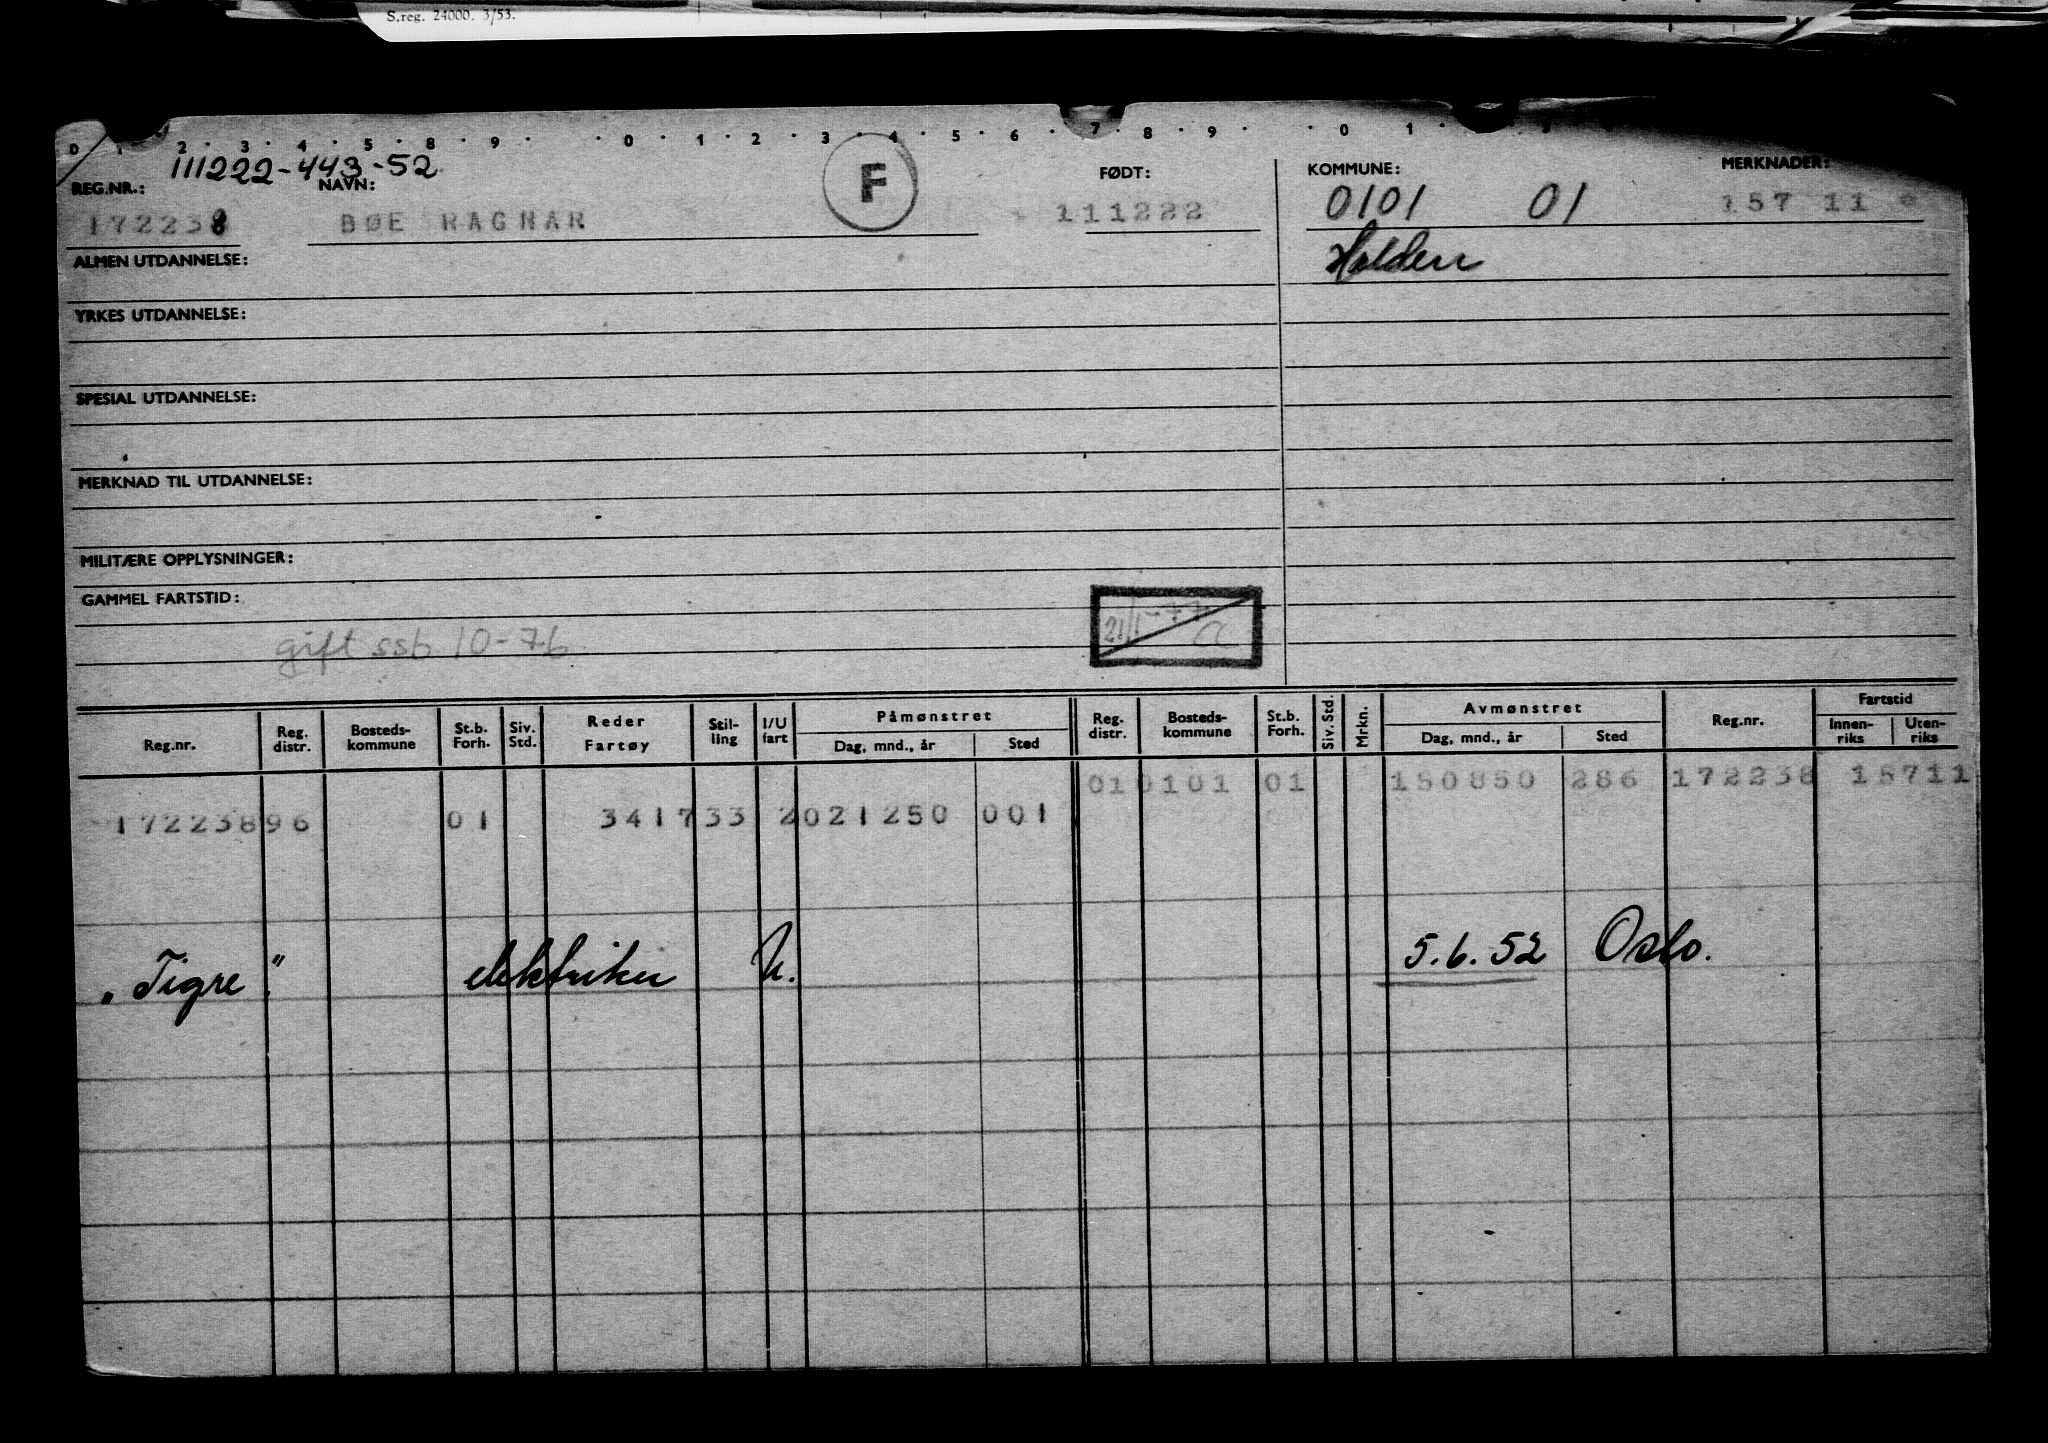 S.reg. 24000. 3/53.
0 1 2 3 4 5 8 9 0 1 2 3 4 5 6 7 8 9 0 1
111222-443-52
REG.NR.: NAVN: F FØDT: KOMMUNE: MERKNADER:
172238 BØE RAGNAR 111222 0101 01 157 11
Halden
ALMEN UTDANNELSE:
YRKES UTDANNELSE:
SPESIAL UTDANNELSE:
MERKNAD TIL UTDANNELSE:
MILITÆRE OPPLYSNINGER:
GAMMEL FARTSTID:
gift ssb 10-76
21/1-77
Reg.nr. Reg. distr. Bosteds-kommune St.b. Forh. Siv. Std. Reder Fartøy Stil-ling I/U fart Påmønstret Dag, mnd., år Sted Reg. distr. Bosteds-kommune St.b. Forh. Siv. Std. Mrkn. Avmønstret Dag, mnd., år Sted Reg.nr. Fartstid Innen-riks Uten-riks
01 0101 01 150850 286 172238 15711
172238 96 01 3417 33 2 021250 001
„Tigre". elektriker U. 5.6.52 Oslo.